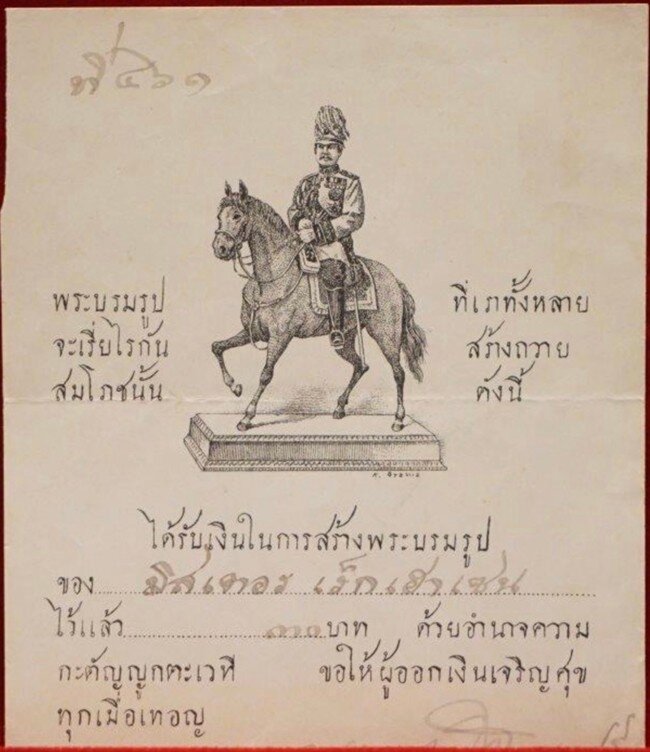 ที่ ๔๖๑
พระบรมรูป ที่เราทั้งหลาย
จะเรี่ยไรกัน สร้างถวาย
สมโภชนั้น ดังนี้
ได้รับเงินในการสร้างพระบรมรูป
ของ มิสเตอร
ไว้แล้ว บาท ด้วยอำนาจความ
กะตัญญูกตะเวที ขอให้ผู้ออกเงินเจริญศุข
ทุกเมื่อเทอญ